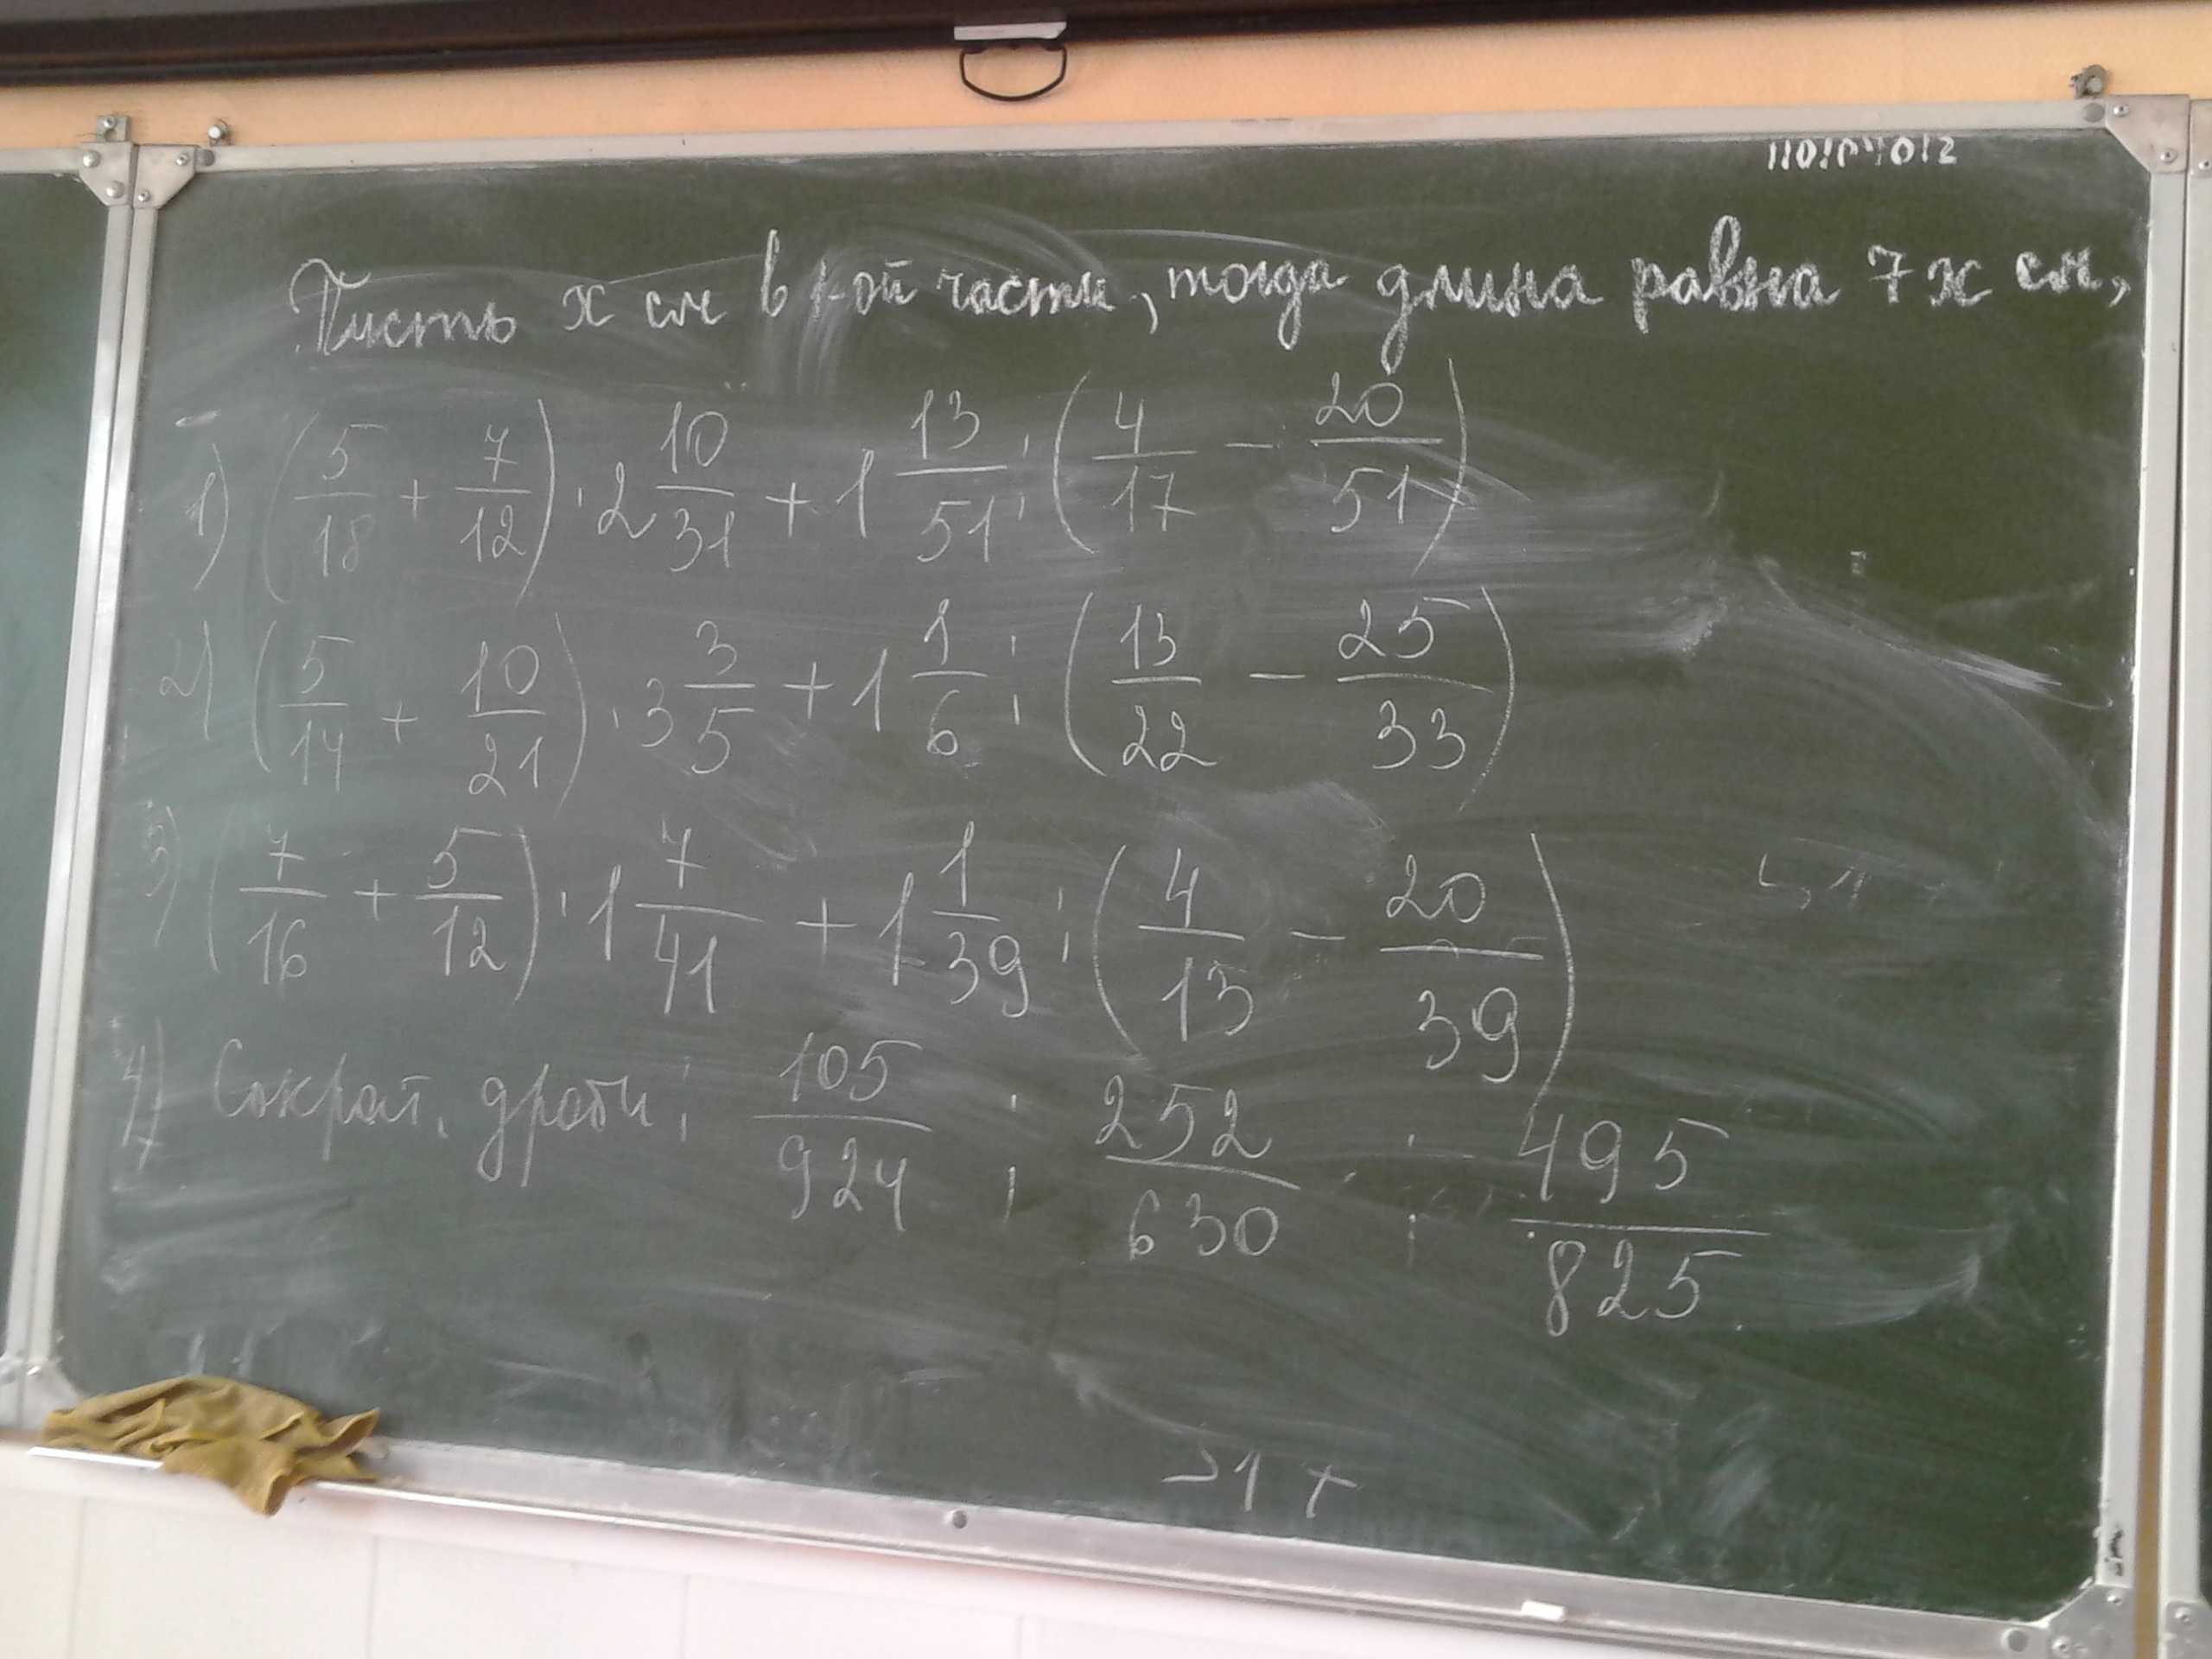 110104012
Пусть x см в 1-ой части, тогда длина равна 7x см,
1) (5/18 + 7/12) · 2 10/31 + 1 13/51 : (4/17 - 20/51)
2) (5/14 + 10/21) · 3 3/5 + 1 1/6 : (13/22 - 25/33)
3) (7/16 + 5/12) · 1 7/41 + 1 1/39 : (4/13 - 20/39)
4) Сократ. дроби: 105/924 ; 252/630 ; 495/825